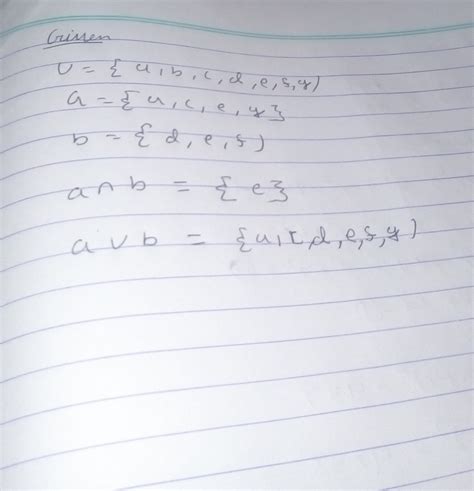 Given
U = { a, b, c, d, e, f, g }
a = { a, c, e, g }
b = { d, e, f }
a ∩ b = { e }
a ∪ b = { a, c, d, e, f, g }